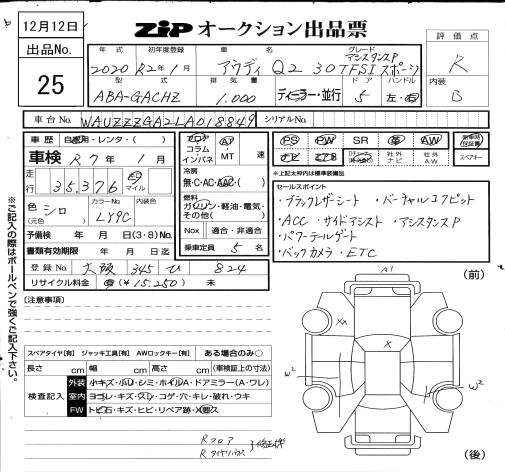 12月12日
出品No.
25
ZIP オークション出品票
年式 初年度登録 車名 グレード
2020 R2年1月 アウディ Q2 30TFSI スポーツ
アシスタンスP
型式 排気量 ドア ハンドル
ABA-GACHZ 1.000 ディーラー・並行 5 左・右
評価点
R
内装
B
車台No. WAUZZZGA2LA018849 シリアルNo.
車歴 自家用・レンタ・( )
車検 R7年 1月
走行 35.376 マイル
色 シロ (元色)
カラーNo. LY9C
内装色
予備検 年 月 日(3・8)No.
書類有効期限 年 月 日迄
登録No. 大阪 345 ひ 824
リサイクル料金 (¥15.250) 未
フロア コラム インパネ
AT MT 速
冷房
無・C・AC・AAC・( )
燃料
ガソリン・軽油・電気・その他( )
Nox 適合・非適合
乗車定員 5 名
PS PW SR 革 AW
ナビ エアB
社外ナビ 社外AW
新車時保証書
スペアキー
※上記太枠内は標準装備品
セールスポイント
・ブラックレザーシート ・バーチャルコクピット
・ACC ・サイドアシスト ・アシスタンスP
・パワーテールゲート
・バックカメラ ・ETC
※ご記入の際はボールペンで強くご記入下さい。
(注意事項)
スペアタイヤ【有】 ジャッキ工具【有】 AWロックキー【有】 ある場合のみ○
長さ cm 幅 cm 高さ cm (車検証上の寸法)
検査記入
外装 小キズ・小U・シミ・ホイルA・ドアミラー(A・ワレ)
室内 ヨゴレ・キズ・スレ・コゲ・穴・キレ・破れ・ウキ
FW トビ石・キズ・ヒビ・リペア跡・X要ス
Rフロア
Rタイヤハウス
修正機
(前)
A1
XX
X
W2
W2
(後)